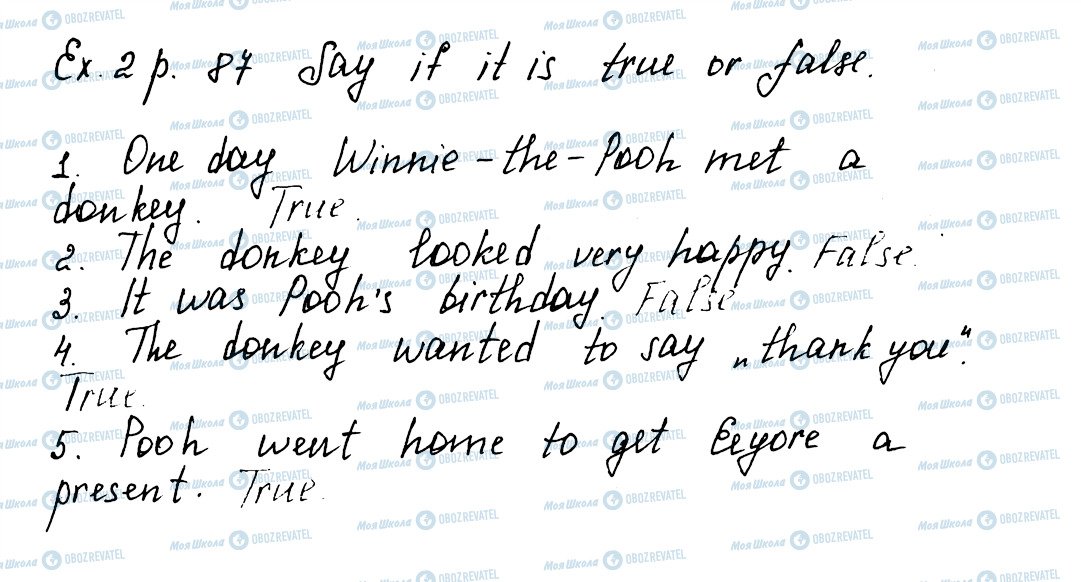 Ex. 2 p. 87 Say if it is true or false.
1. One day Winnie-the-Pooh met a
donkey. True.
2. The donkey looked very happy. False.
3. It was Pooh's birthday. False
4. The donkey wanted to say „thank you“.
True.
5. Pooh went home to get Eeyore a
present. True.